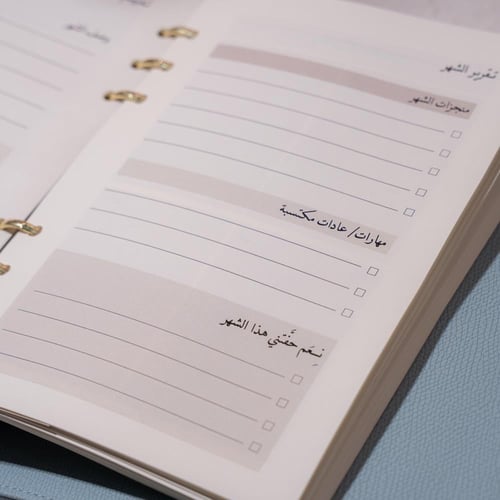 تقرير الشهر
منجزات الشهر
مهارات/ عادات مكتسبة
نِعَم حَفَّتني هذا الشهر